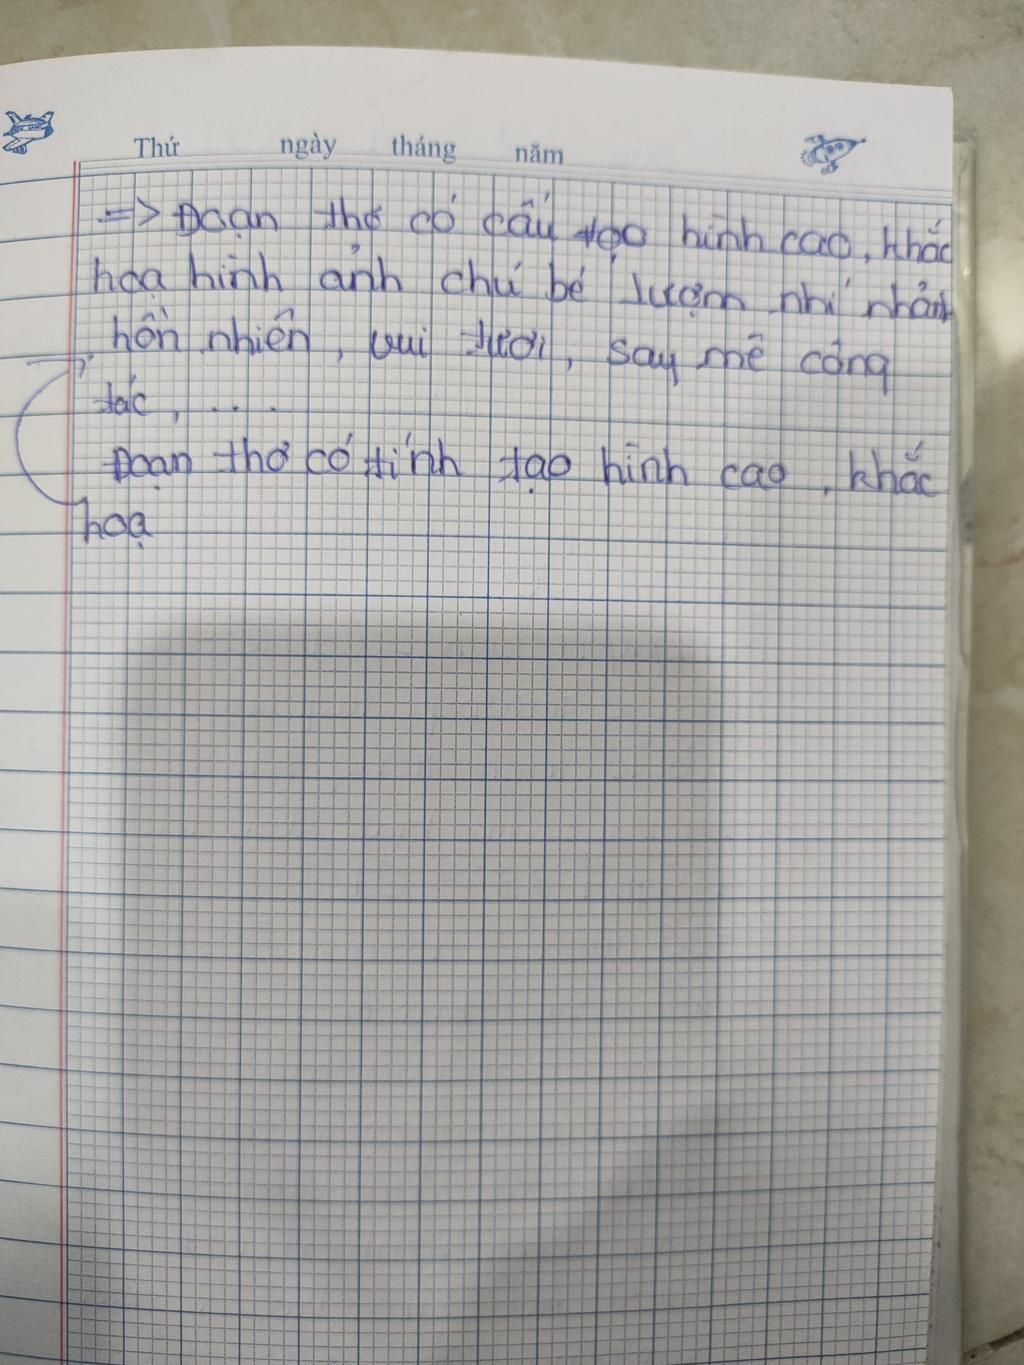 Thứ ngày tháng năm
=> Đoạn thơ có cấu tạo hình cao, khắc
hoạ hình ảnh chú bé lượm nhí nhảnh
hồn nhiên, vui tươi, say mê công
tác, ....
Đoạn thơ có tính tạo hình cao, khắc
hoạ